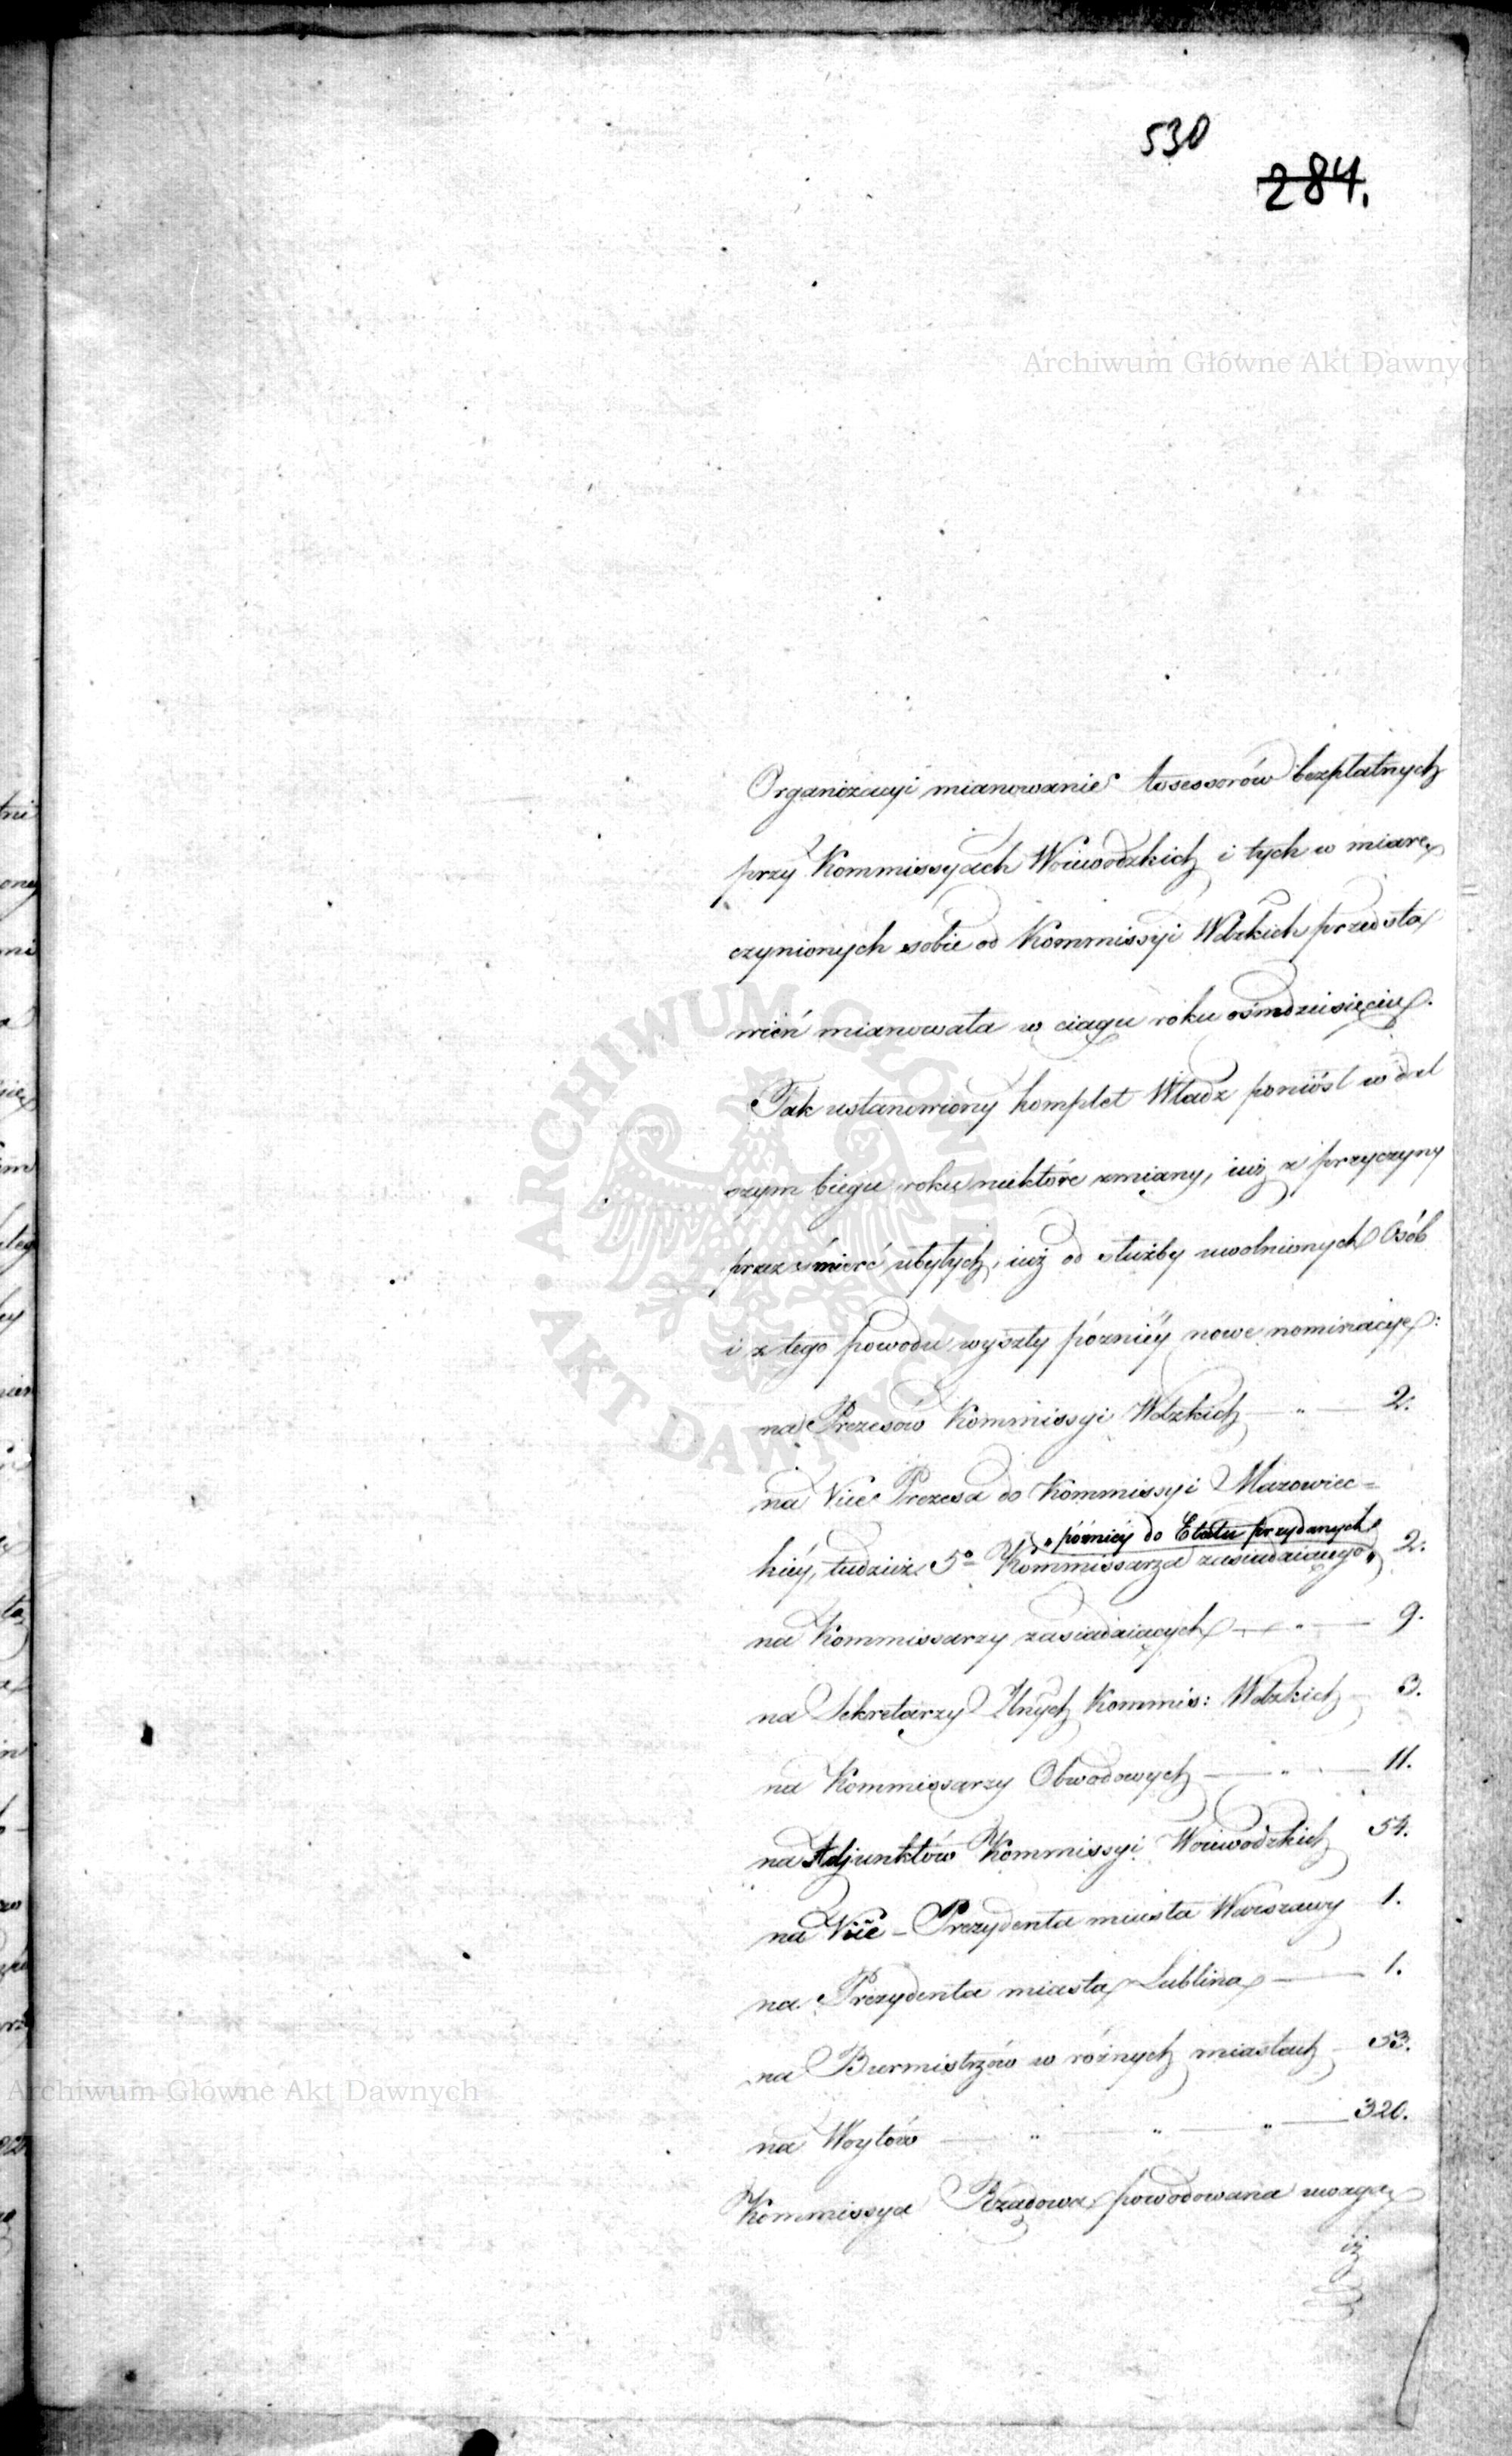 530
284.
Archiwum Główne Akt Dawnych
Organizacyi mianowanie Assessorów bezpłatnych
przy Kommissyach Woiewodzkich i tych w miarę
czynionych sobie od Kommissyi Wdzkich przedsta
wień mianowała w ciągu roku ośmdziesięciu.
Tak ustanowiony komplet Władz poniósł w dal
szym biegu roku niektóre zmiany, iuż z przyczyny
przez śmierć ubyłych, iuż od służby uwolnionych Osób
i z tego powodu wyszły późniéy nowe nominacye:
na Prezesów Kommissyi Wdzkich — " — 2.
na Vice Prezesa do Kommissyi Mazowiec=
kiéy, tudzież 5º Kommissarza zasiadaiącego, 2.
" późniéy do Etatu przydanych
na Kommissarzy zasiadaiących — " — 9.
na Sekretarzy Jlnych Kommis: Wdzkich — 3.
na Kommissarzy Obwodowych — " — 11.
na Adjunktów Kommissyi Woiewodzkich 54.
na Vice-Prezydenta miasta Warszawy 1.
na Prezydenta miasta Lublina — 1.
na Burmistrzów w różnych miastach — 53.
na Woytów — " — " — " — 320.
Kommissya Rządowa powodowana uwagą
iż
ARCHIWUM GŁÓWNE AKT DAWNYCH
Archiwum Główne Akt Dawnych